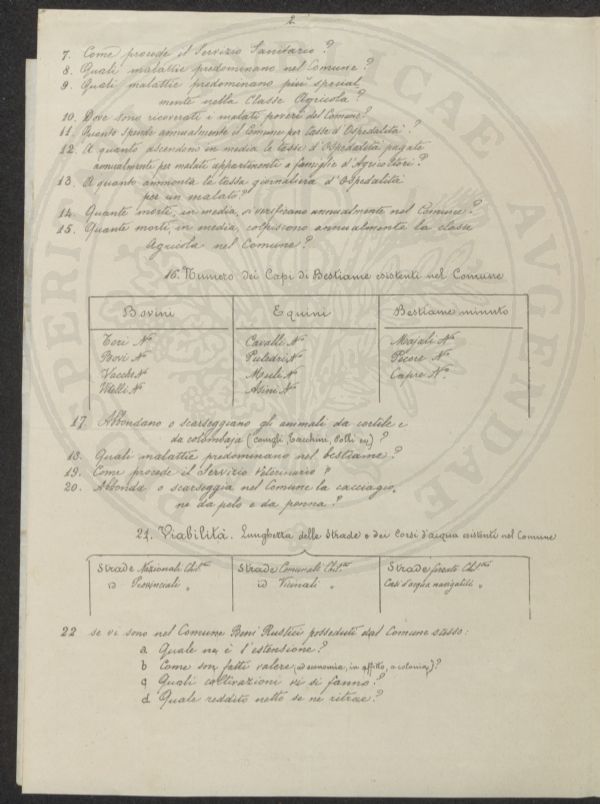 2
7. Come procede il Servizio Sanitario?
8. Quali malattie predominano nel Comune?
9. Quali malattie predominano più special
mente nella Classe Agricola?
10. Dove sono ricoverati i malati poveri del Comune?
11. Quanto spende annualmente il Comune per tasse d'Ospedalità?
12. A quanto ascendono in media le tasse d'Ospedalità pagate
annualmente per malati appartenenti a famiglie d'Agricoltori?
13. A quanto ammonta la tassa giornaliera d'Ospedalità
per un malato?
14. Quante morti, in media, si verificano annualmente nel Comune?
15. Quante morti, in media, colpiscono annualmente la classe
Agricola nel Comune?
16. Numero dei Capi di Bestiame esistenti nel Comune
Bovini
Equini
Bestiame minuto
Tori N°
Cavalli N°
Majali N°
Bovi N°
Puledri N°
Pecore N°
Vacche N°
Muli N°
Capre N°
Vitelli N°
Asini N°
17 Abbondano o scarseggiano gli animali da cortile e
da colombaja (conigli, Tacchini, Polli ec.)?
18. Quali malattie predominano nel bestiame?
19. Come procede il Servizio Veterinario "
20. Abbonda o scarseggia nel Comune la cacciagione
da pelo e da penna?
21. Viabilità. Lunghezza delle Strade e dei Corsi d'acqua esistenti nel Comune
Strade Nazionali Chil.tri
Strade Comunali Chil.tri
Strade ferrate Chil.tri
id Provinciali "
id Vicinali "
Corsi d'acqua navigabili "
22 se vi sono nel Comune Beni Rustici posseduti dal Comune stesso:
a Quale ne è l'estensione?
b Come son fatti valere (ad economia, in affitto, a colonia)?
c Quali coltivazioni vi si fanno?
d Quale reddito netto se ne ritrae?